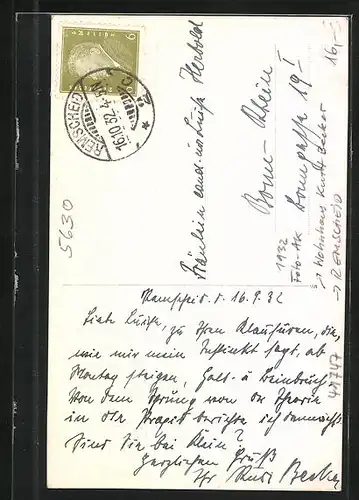 6
REMSCHEID
16.10.32. 4-5N
16,-
Fräulein cand. Luise Herbold
Bonn-Rhein
19 I
1932
Foto-AK
→ Wohnhaus Kurt Becker
→ REMSCHEID
5630
41747
Remscheid, d. 16.9.32
Liebe Luise, zu Ihren Klausuren, die,
wie mir mein Instinkt sagt, ab
Montag steigen, Hals- u Beinbruch
Von dem Sprung von der Theorie
in die Praxis berichte ich demnächst
Sind Sie bei Klein?
Herzlichen Gruß
Ihr Kurt Becker